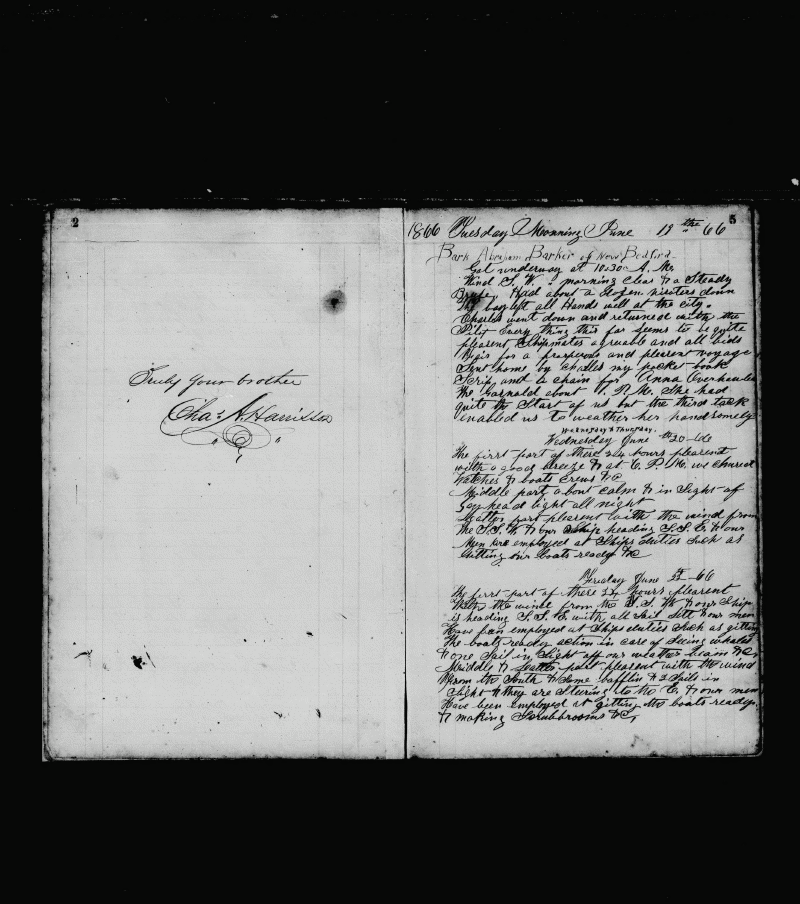 2
Truly your brother
Chas. A. Harrisson
5
1866 Tuesday Morning June 19 the 66
Bark Abraham Barker of New Bedford
Got underway at 10.30 A. M.
Wind S. W. morning clear & a Steady
Breeze. Had about a dozen visiters down
The bay left all Hands well at the city.
Charles went down and returned with the
Pilot Every thing this far seems to be quite
plearent Shipmates agreable and all bids
for a prosperous and plearent voyage
Sent home by charles my pocket book
Scrip and a chain for Anna Overhauled
the about 1. P. M. She had
quite the Start of us but the third tack
inabled us to weather her handsomely
Wednesday & Thursday.
Wednesday June 20 - 66
The first part of there 24 hours plearent
with a good breeze & at 6. P. M. we chused
watches & boats crews &c
Middle part about calm & in Sight of
Gay head light all night
Latter part plearent with the wind from
the S. S. W. & our Ship heading S. S. E. & our
Men are employed at Ships duties Such as
gitting our boats ready &c
Friday June 22 - 66
The first part of there 24 hours plearent
With the wind from the S. S. W. & our Ship
is heading S. S. E. with all Sail Sett & our men
Have been employed at Ships duties Such as gitting
the boats ready action in care of Seeing whales
& one Sail in Sight off our weather beam &c,
Middle & Latter part plearent with the wind
From the South & Some bafflin & 2 Sails in
Sight & they are Steering to the E. & our men
Have been employed at gitting the boats ready.
& making Scrubbrooms &c,